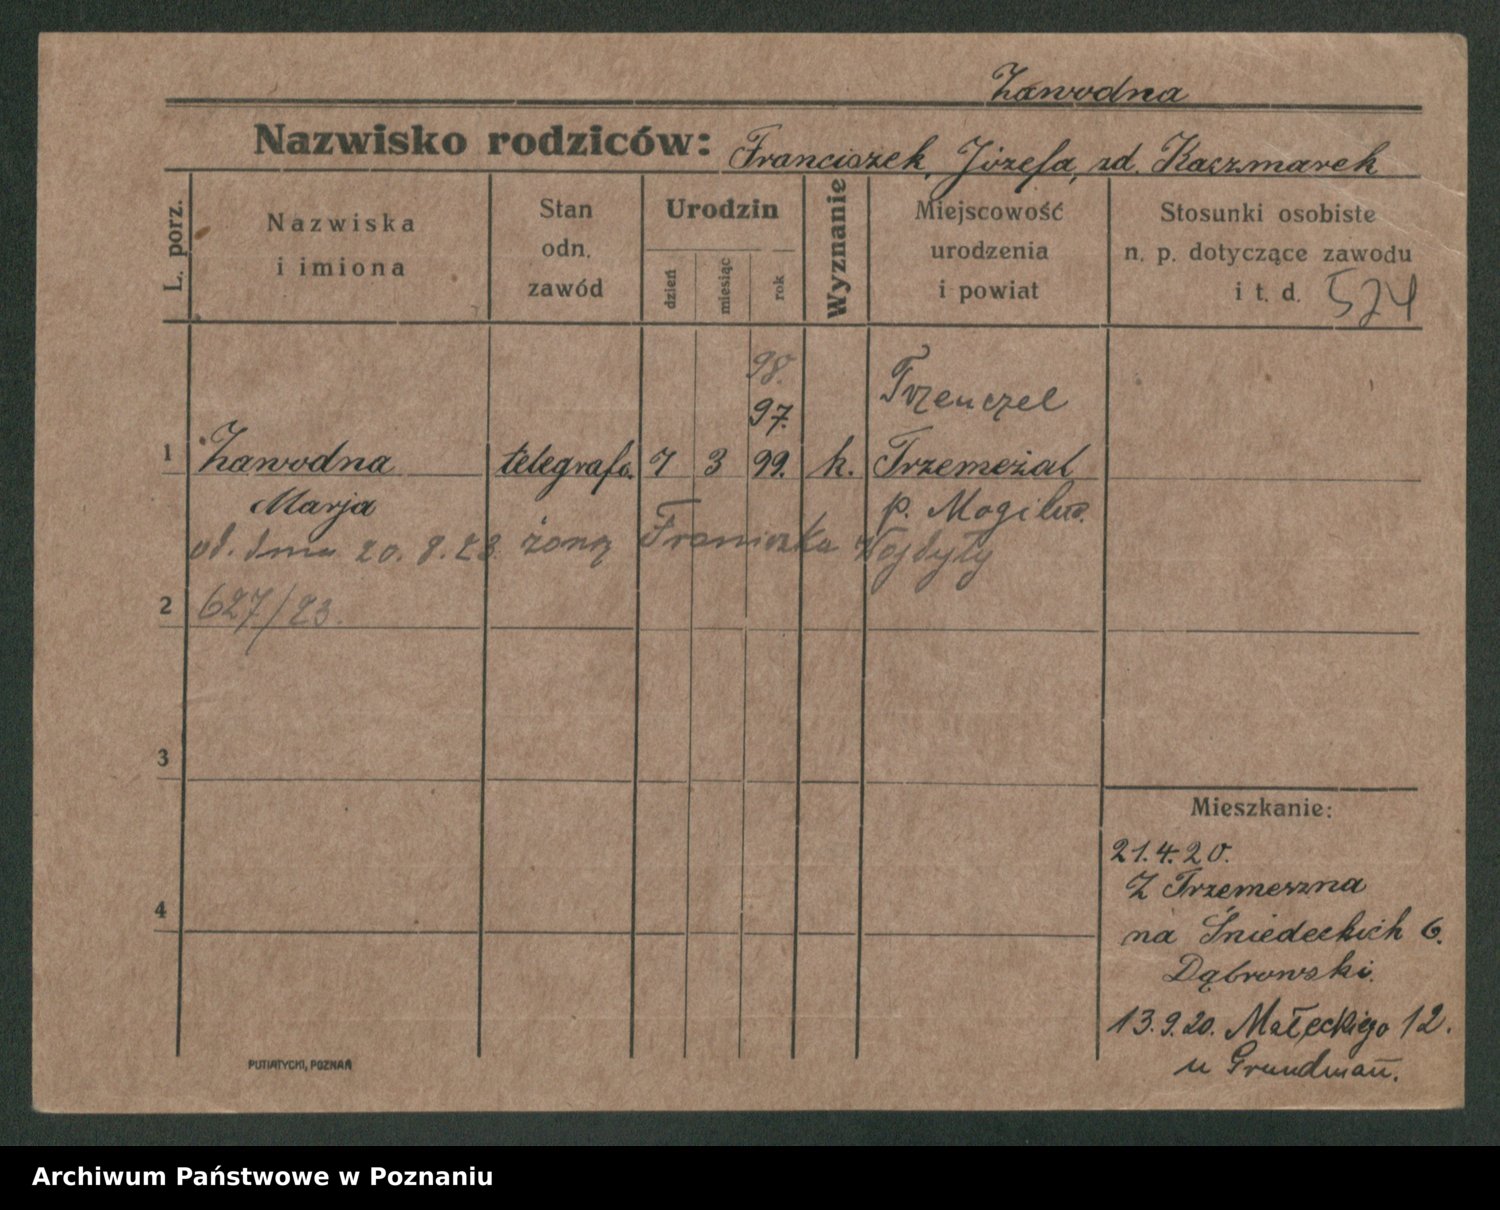 Zawodna
Nazwisko rodziców: Franciszek, Józefa, zd. Kaczmarek
L. porz.
Nazwiska
i imiona
Stan
odn.
zawód
Urodzin
dzień
miesiąc
rok
Wyznanie
Miejscowość
urodzenia
i powiat
Stosunki osobiste
n. p. dotyczące zawodu
i t. d. 524
98.
97.
Trzenczel
1 Zawodna telegrafo. 7 3 99. k. Trzemeżal
Marja p. Mogilno.
od. dnia 20.8.23. żoną Franciszka Wojdyły
2 627/23.
3
4
Mieszkanie:
21.4.20.
Z Trzemeszna
na Śniedeckich 6.
Dąbrowski.
13.9.20. Małeckiego 12.
u Grundmann.
PUTIATYCKI, POZNAŃ
Archiwum Państwowe w Poznaniu